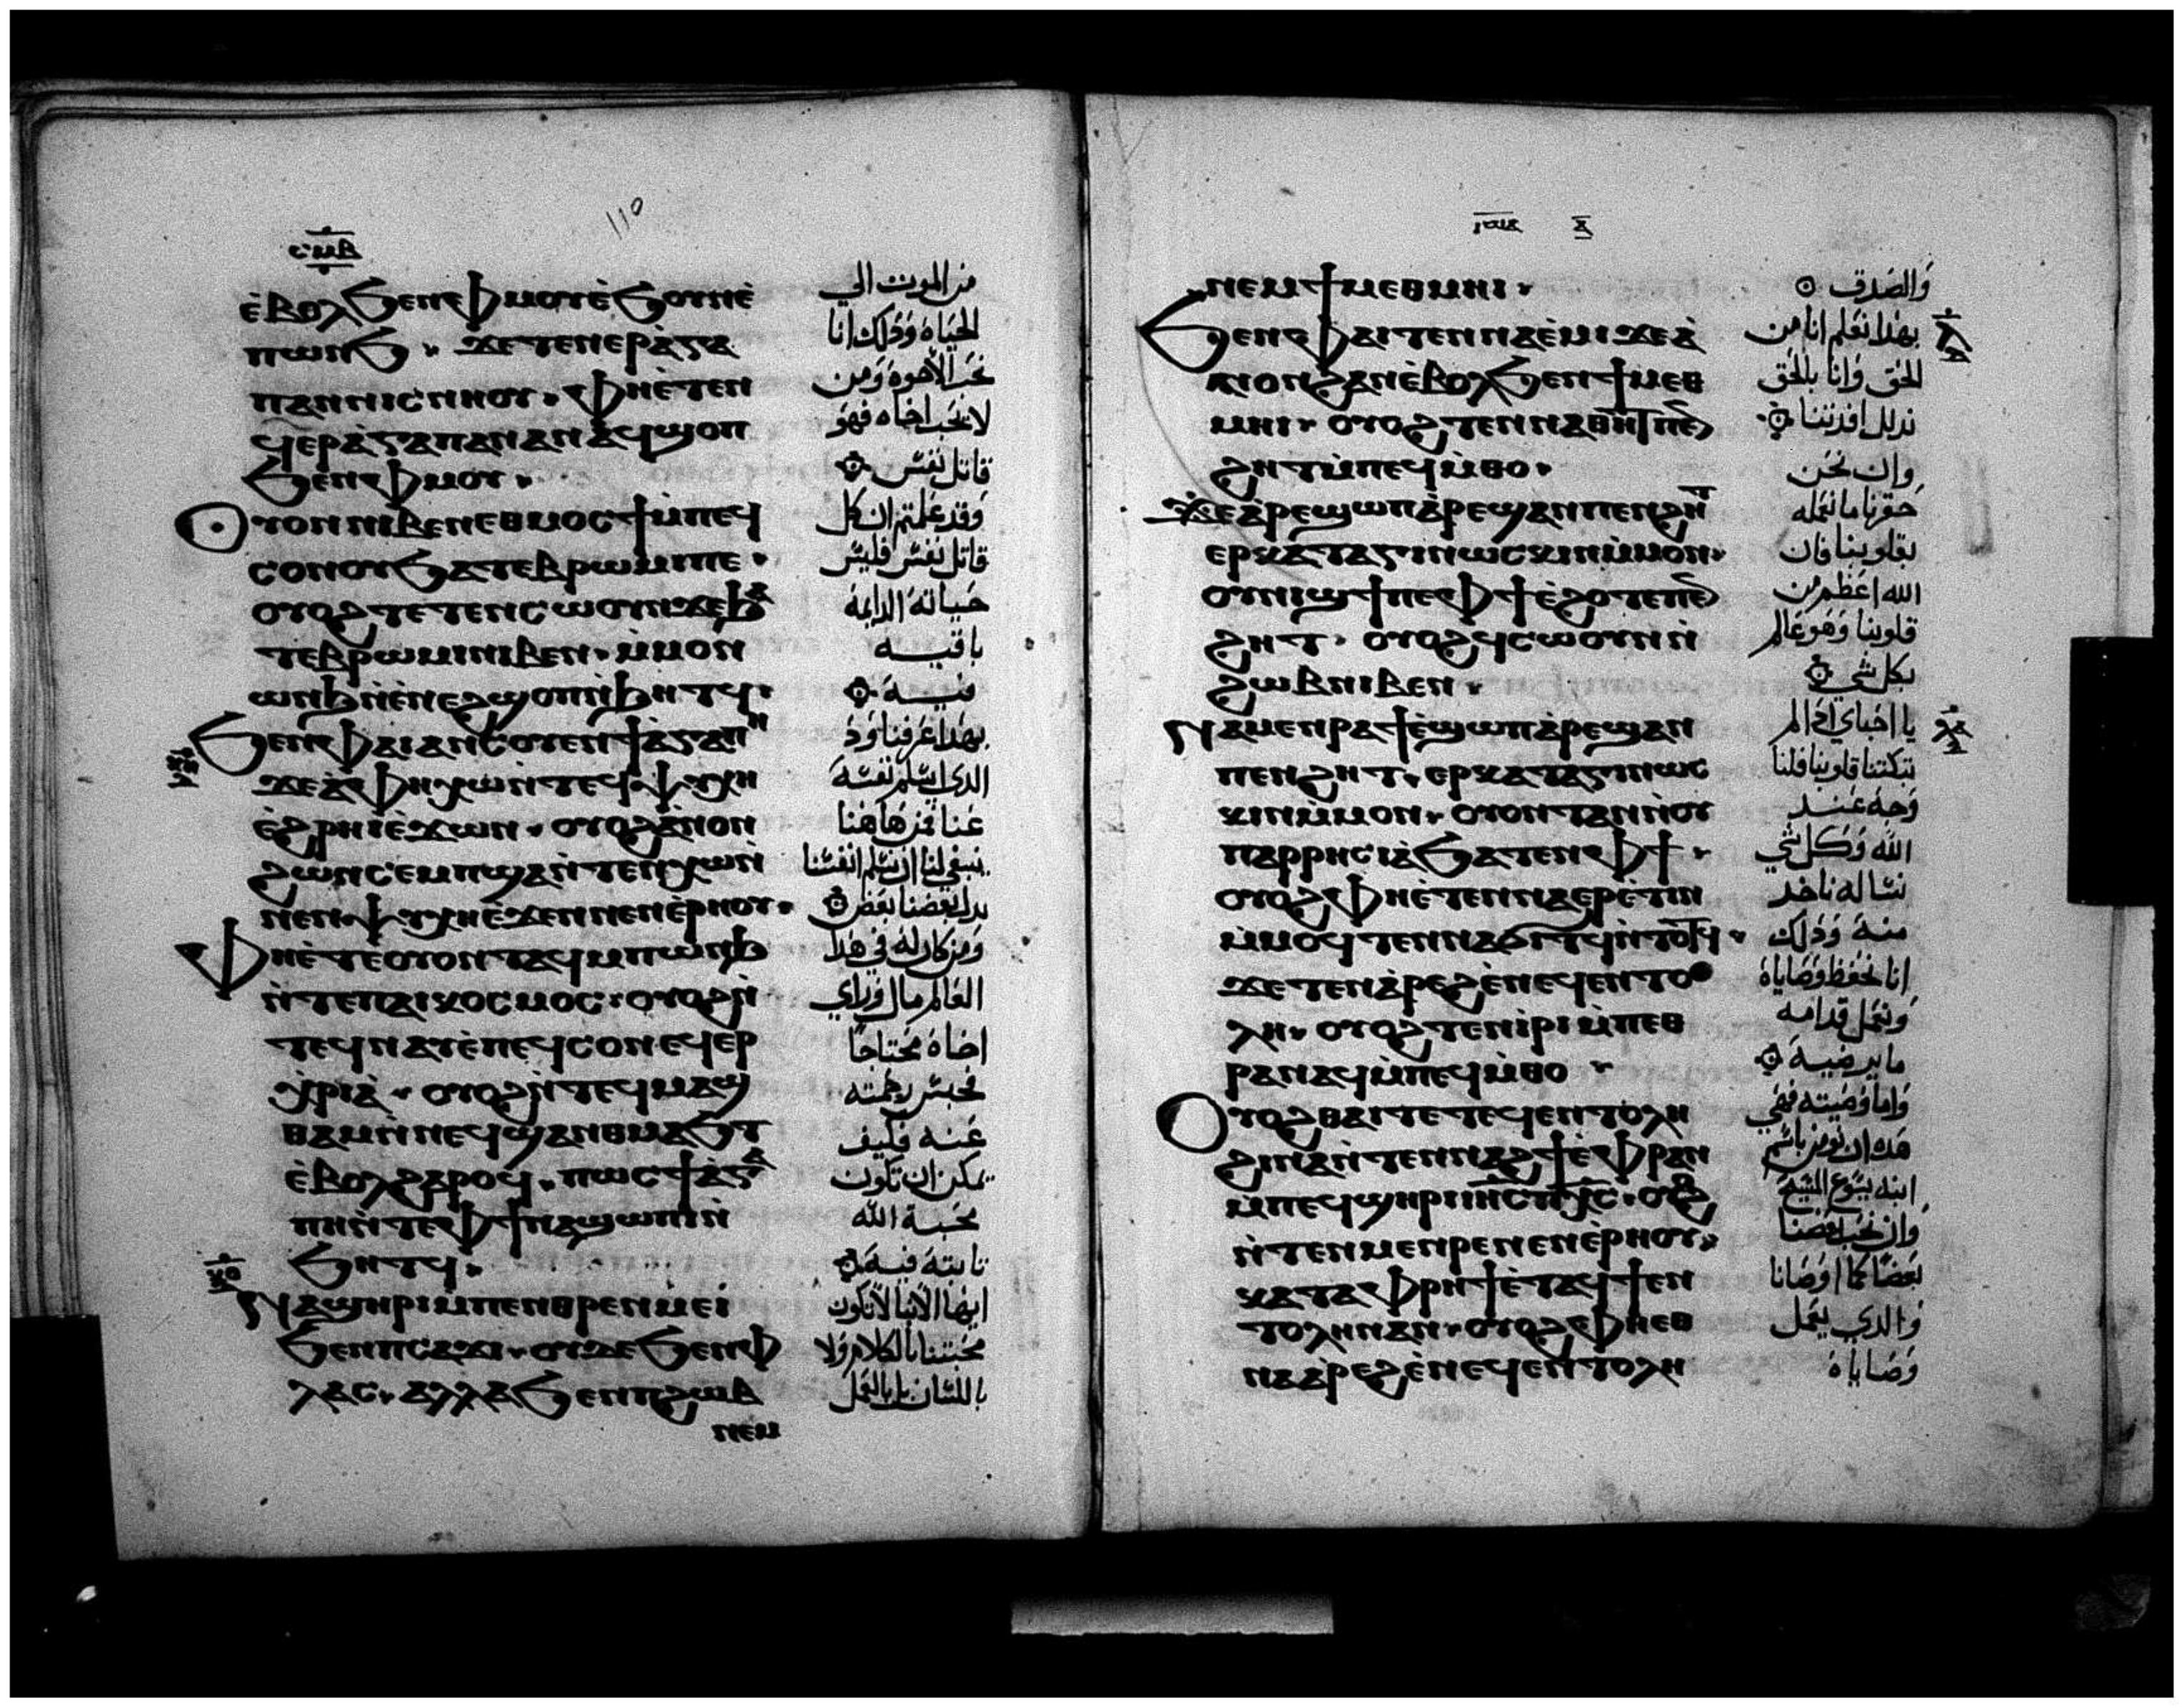 110
ⲥⲙⲃ
ⲉ̀ⲃⲟⲗϧⲉⲛⲫⲙⲟⲩⲉ̀ϧⲟⲩⲛⲉ̀
ⲡⲱⲛϧ · ϫⲉⲧⲉⲛⲉⲣⲁ̀ⲅⲁ
ⲡⲁⲛⲛⲓⲥⲛⲏⲟⲩ · ⲫⲏⲉ̀ⲧⲉⲛ
ϥⲉⲣⲁ̀ⲅⲁⲡⲁⲛⲁⲛⲁ̀ϥϣⲟⲡ
ϧⲉⲛⲫⲙⲟⲩ ·
ⲟⲩⲟⲛⲛⲓⲃⲉⲛⲉⲑⲙⲟⲥϯⲙ̀ⲡⲉϥ
ⲥⲟⲛⲟⲩϧⲁⲧⲉⲃⲣⲱⲙⲓⲡⲉ ·
ⲟⲩⲟϩⲧⲉⲧⲉⲛⲥⲱⲟⲩⲛϫⲉϧⲁ
ⲧⲉⲃⲣⲱⲙⲓⲛⲓⲃⲉⲛ · ⲙ̀ⲙⲟⲛ
ⲱⲛϧⲛ̀ⲉ̀ⲛⲉϩϣⲟⲡⲛ̀ϧⲏⲧϥ ·
ϧⲉⲛⲫⲁⲓⲁⲛⲥⲟⲩⲉⲛϯⲁ̀ⲅⲁⲡⲏ
ϫⲉⲁ̀ⲫⲏⲭⲱⲛ̀ⲧⲉϥⲯⲩⲭⲏ
ⲉ̀ϩⲣⲏⲓⲉ̀ϫⲱⲛ · ⲟⲩⲟϩⲁ̀ⲛⲟⲛ
ϩⲱⲛⲥⲉⲙⲡϣⲁⲛ̀ⲧⲉⲛⲭⲱⲛ̀
ⲛⲉⲛⲯⲩⲭⲏⲉ̀ϫⲉⲛⲛⲉⲛⲉ̀ⲣⲏⲟⲩ ·
ⲫⲏⲉ̀ⲧⲉⲟⲩⲟⲛⲧⲁϥⲙⲡⲱⲛϧ
ⲛ̀ⲧⲉⲡⲁⲓⲕⲟⲥⲙⲟⲥ · ⲟⲩⲟϩⲛ̀
ⲧⲉϥⲛⲁⲩⲉ̀ⲡⲉϥⲥⲟⲛⲉϥⲉⲣ
ⲭ̀ⲣⲓⲁ̀ · ⲟⲩⲟϩⲛ̀ⲧⲉϥⲙⲁϣ
ⲑⲁⲙⲛ̀ⲛⲉϥϣⲁⲛⲑⲙⲁϧⲧ
ⲉ̀ⲃⲟⲗϩⲁⲣⲟϥ · ⲡⲱⲥϯⲁ̀ⲅⲁ
ⲡⲏⲛ̀ⲧⲉⲫϯⲛⲁϣⲱⲡⲓⲛ̀
ϧⲏⲧϥ ·
ⲛⲁϣⲏⲣⲓⲙⲡⲉⲛⲑⲣⲉⲛⲙⲉⲓ
ϧⲉⲛⲡⲥⲁϫⲓ · ⲟⲩⲇⲉϧⲉⲛⲫ
ⲗⲁⲥ · ⲁⲗⲗⲁϧⲉⲛⲡϩⲱⲃ
ⲛⲉⲙ
من الموت الي
الحياه وذلك انا
نحب الاخوه ومن
لا يحب اخاه فهو
قاتل نفس
وقد علمتم ان كل
قاتل نفس فليس
حياته الدايمه
باقيه
فيه
بهذا عرفنا ود
الذي اسلم نفسه
عنا فمن هاهنا
ينبغي لنا ان نسلم انفسنا
بدل بعضنا بعض
ومن كان له في هذا
العالم مال وراي
اخاه محتاجا
فحبس رحمته
عنه فكيف
يمكن ان تكون
محبة الله
ثابته فيه
ايها الابنا لا تكون
محبتنا بالكلام ولا
باللسان بل بالعمل
ⲛⲉⲙϯⲙⲉⲑⲙⲏⲓ ·
ϧⲉⲛⲫⲁⲓⲧⲉⲛⲛⲁⲉ̀ⲙⲓϫⲉⲁ̀
ⲛⲟⲛϩⲁⲛⲉ̀ⲃⲟⲗϧⲉⲛϯⲙⲉⲑ
ⲙⲏⲓ · ⲟⲩⲟϩⲧⲉⲛⲛⲁⲑⲏⲧⲡⲉⲛ
ϩⲏⲧⲙ̀ⲡⲉϥⲙ̀ⲑⲟ ·
ϫⲉⲁ̀ⲣⲉϣⲱⲡⲁ̀ⲣⲉϣⲁⲛⲡⲉⲛϩⲏⲧ
ⲉⲣⲕⲁⲧⲁⲅⲓⲛⲱⲥⲕⲓⲛⲙ̀ⲙⲟⲛ ·
ⲟⲩⲛⲓϣϯⲡⲉⲫϯⲉ̀ϩⲟⲧⲉⲡⲉⲛ
ϩⲏⲧ · ⲟⲩⲟϩϥⲥⲱⲟⲩⲛⲛ̀
ϩⲱⲃⲛⲓⲃⲉⲛ ·
ⲛⲁⲙⲉⲛⲣⲁϯⲉ̀ϣⲱⲡⲁ̀ⲣⲉϣⲁⲛ
ⲡⲉⲛϩⲏⲧ · ⲉⲣⲕⲁⲧⲁⲅⲓⲛⲱⲥ
ⲕⲓⲛⲙ̀ⲙⲟⲛ · ⲟⲩⲟⲛⲧⲁⲛⲛ̀ⲟⲩ
ⲡⲁⲣⲣⲏⲥⲓⲁ̀ϧⲁⲧⲉⲛⲫϯ ·
ⲟⲩⲟϩⲫⲏⲉ̀ⲧⲉⲛⲛⲁⲉⲣⲉ̀ⲧⲓⲛ
ⲙ̀ⲙⲟϥⲧⲉⲛⲛⲁϭⲓⲧϥⲛ̀ⲧⲟⲧϥ ·
ϫⲉⲧⲉⲛⲁ̀ⲣⲉϩⲉ̀ⲛⲉϥⲉⲛⲧⲟ
ⲗⲏ · ⲟⲩⲟϩⲧⲉⲛⲓ̀ⲣⲓⲙ̀ⲡⲉⲑ
ⲣⲁⲛⲁϥⲙ̀ⲡⲉϥⲙ̀ⲑⲟ ·
ⲟⲩⲟϩⲑⲁⲓⲧⲉⲧⲉϥⲉⲛⲧⲟⲗⲏ
ϩⲓⲛⲁⲛ̀ⲧⲉⲛⲛⲁϩϯⲉ̀ⲫⲣⲁⲛ
ⲙ̀ⲡⲉϥϣⲏⲣⲓⲓⲏⲥⲡⲭⲥ · ⲟⲩⲟϩ
ⲛ̀ⲧⲉⲛⲙⲉⲛⲣⲉⲛⲉⲛⲉ̀ⲣⲏⲟⲩ ·
ⲕⲁⲧⲁⲫⲣⲏϯⲉ̀ⲧⲁϥϯⲉⲛ
ⲧⲟⲗⲏⲛⲁⲛ · ⲟⲩⲟϩⲫⲏⲉⲑ
ⲛⲁⲁ̀ⲣⲉϩⲉ̀ⲛⲉϥⲉⲛⲧⲟⲗⲏ
والصدق
بهذا نعلم اننا من
الحق وانا بالحق
ندلل افدتنا
وان نحن
حقرنا ما نعمله
بقلوبنا فان
الله اعظم من
قلوبنا وهو عالم
بكل شي
يا احباي اذا لم
تبكتنا قلوبنا فلنا
وجه عند
الله وكل شي
نساله ناخد
منه وذلك
انا نحفظ وصاياه
ونعمل قدامه
ما يرضيه
واما وصيته فهي
هذه ان نومن باسم
ابنه يسوع المسيح
وان نحب بعضنا
بعضا كما اوصانا
والذي يعمل
وصاياه